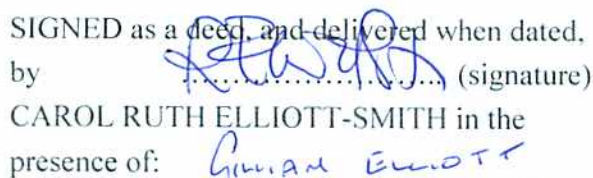 SIGNED as a deed, and delivered when dated,
by ........................................ (signature)
CAROL RUTH ELLIOTT-SMITH in the
presence of: GILLIAN ELLIOTT